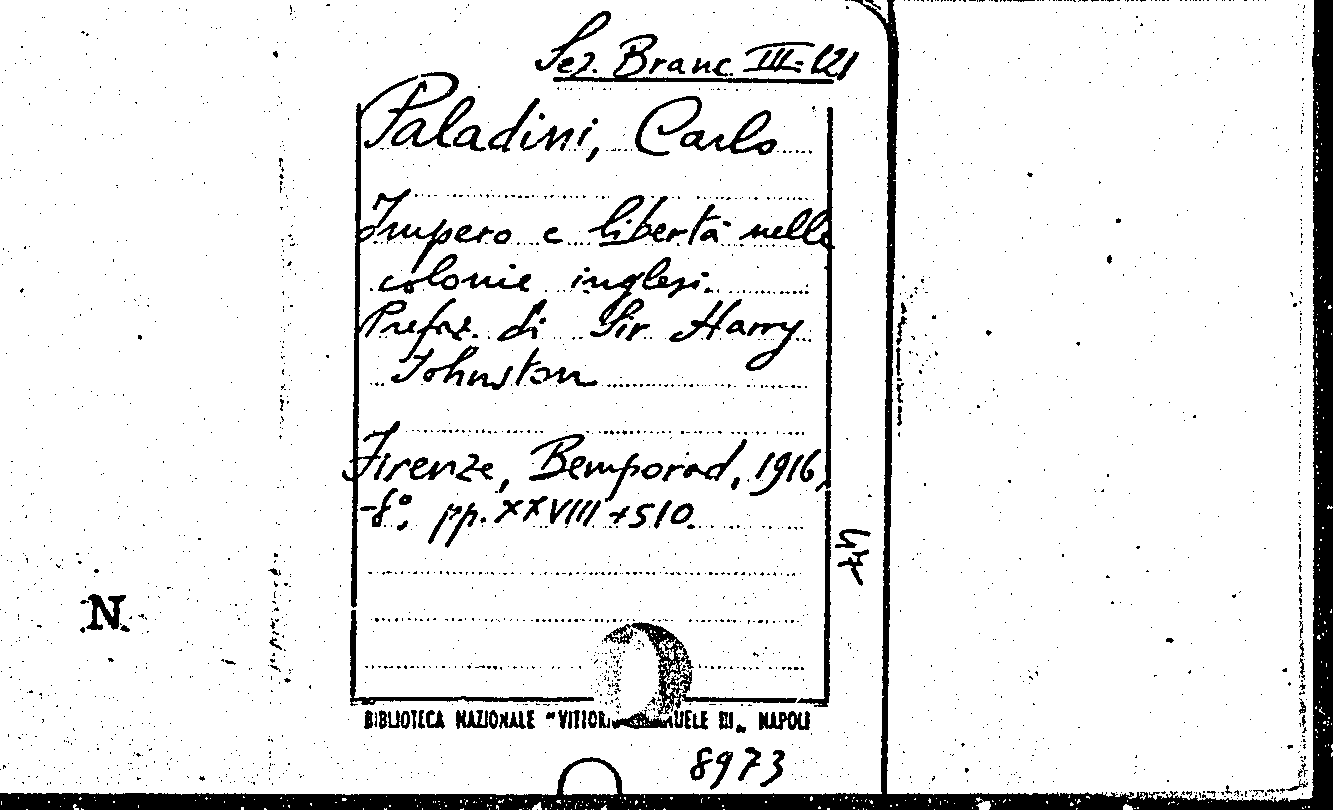 Sez. Branc. III-121
Paladini, Carlo
Impero e libertà nelle
colonie inglesi.
Prefaz. di Sir Harry
Johnston
Firenze, Bemporad, 1916,
-8°, pp. XXVIII+510.
N.
BIBLIOTECA NAZIONALE "VITTORIO EMANUELE III„ NAPOLI
8973